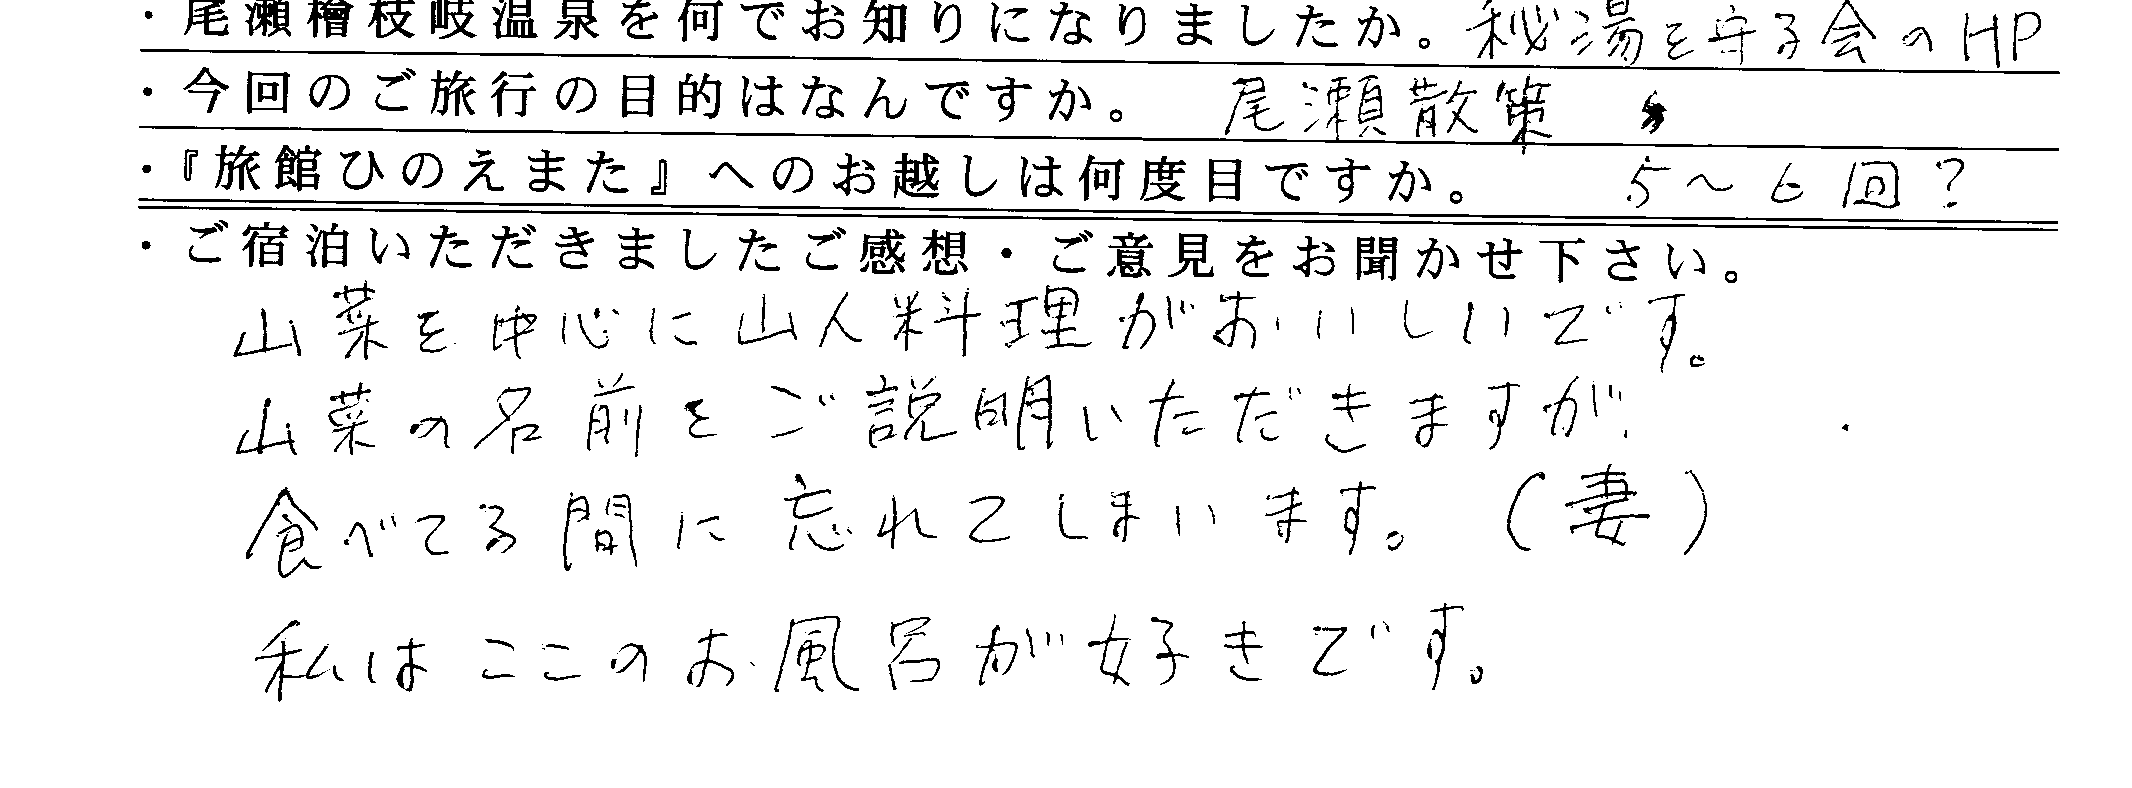 ・尾瀬檜枝岐温泉を何でお知りになりましたか。秘湯を守る会のHP
・今回のご旅行の目的はなんですか。 尾瀬散策
・『旅館ひのえまた』へのお越しは何度目ですか。 5〜6回?
・ご宿泊いただきましたご感想・ご意見をお聞かせ下さい。
山菜を中心に山人料理がおいしいです。
山菜の名前をご説明いただきますが、
食べてる間に忘れてしまいます。(妻)
私はここのお風呂が好きです。